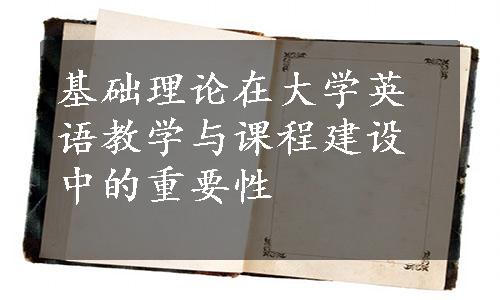 基础理论在大学英
语教学与课程建设
中的重要性